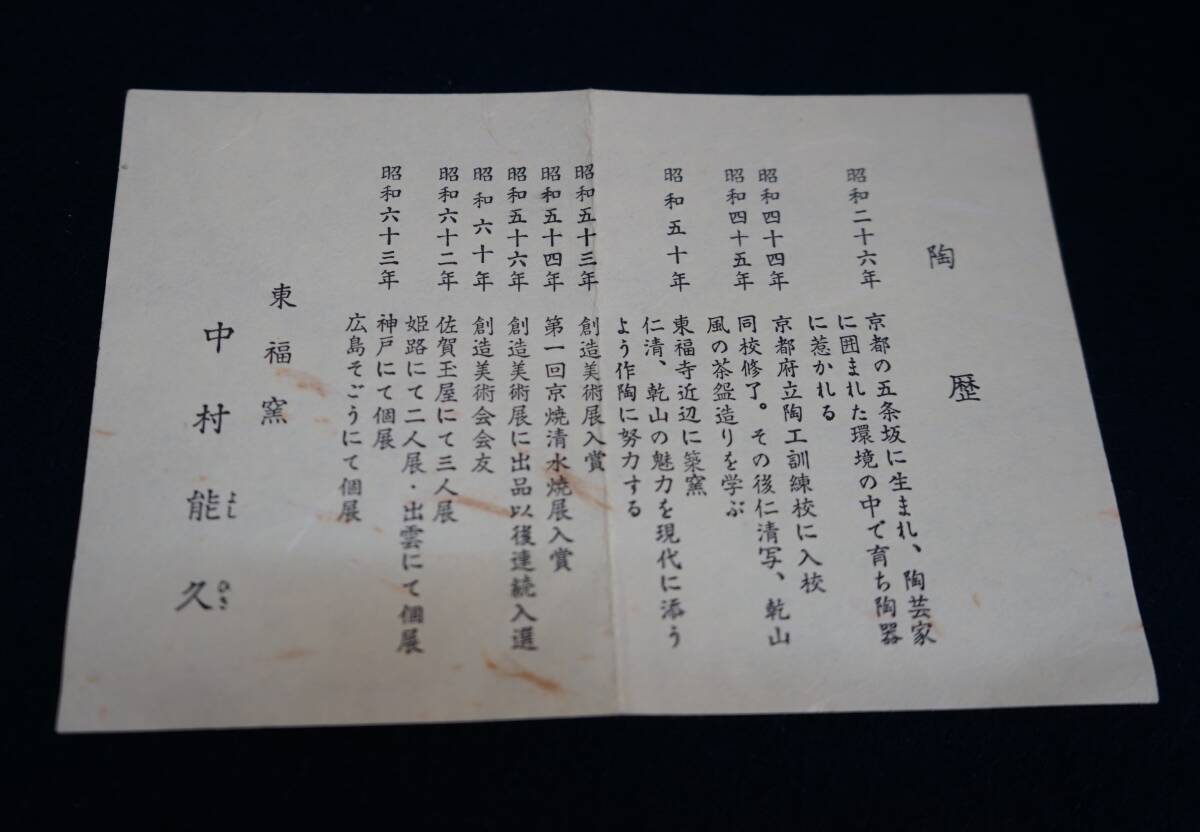 陶歴
昭和二十六年 京都の五条坂に生まれ、陶芸家
に囲まれた環境の中で育ち陶器
に惹かれる
昭和四十四年 京都府立陶工訓練校に入校
昭和四十五年 同校修了。その後仁清写、乾山
風の茶盌造りを学ぶ
昭和五十年 東福寺近辺に築窯
仁清、乾山の魅力を現代に添う
よう作陶に努力する
昭和五十三年 創造美術展入賞
昭和五十四年 第一回京焼清水焼展入賞
昭和五十六年 創造美術展に出品以後連続入選
昭和六十年 創造美術会会友
昭和六十二年 佐賀玉屋にて三人展
姫路にて二人展・出雲にて個展
昭和六十三年 神戸にて個展
広島そごうにて個展
東福窯
中村能久
よし ひさ